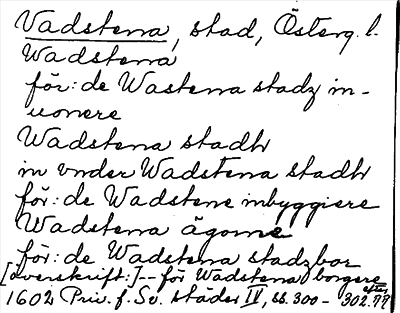 Vadstena, stad, Österg. l.
Wadstena
för: de Wastena stadz in-
uonere
Wadstena stadh
in vnder Wadstena stadh
för: de Wadstene inbyggiere
Wadstena ägorne
för: de Wadstena stadzbor
[överskrift:] -- för Wadstena borgere
1602 Priv. f. Sv. städer IV, ss. 300-302. efter